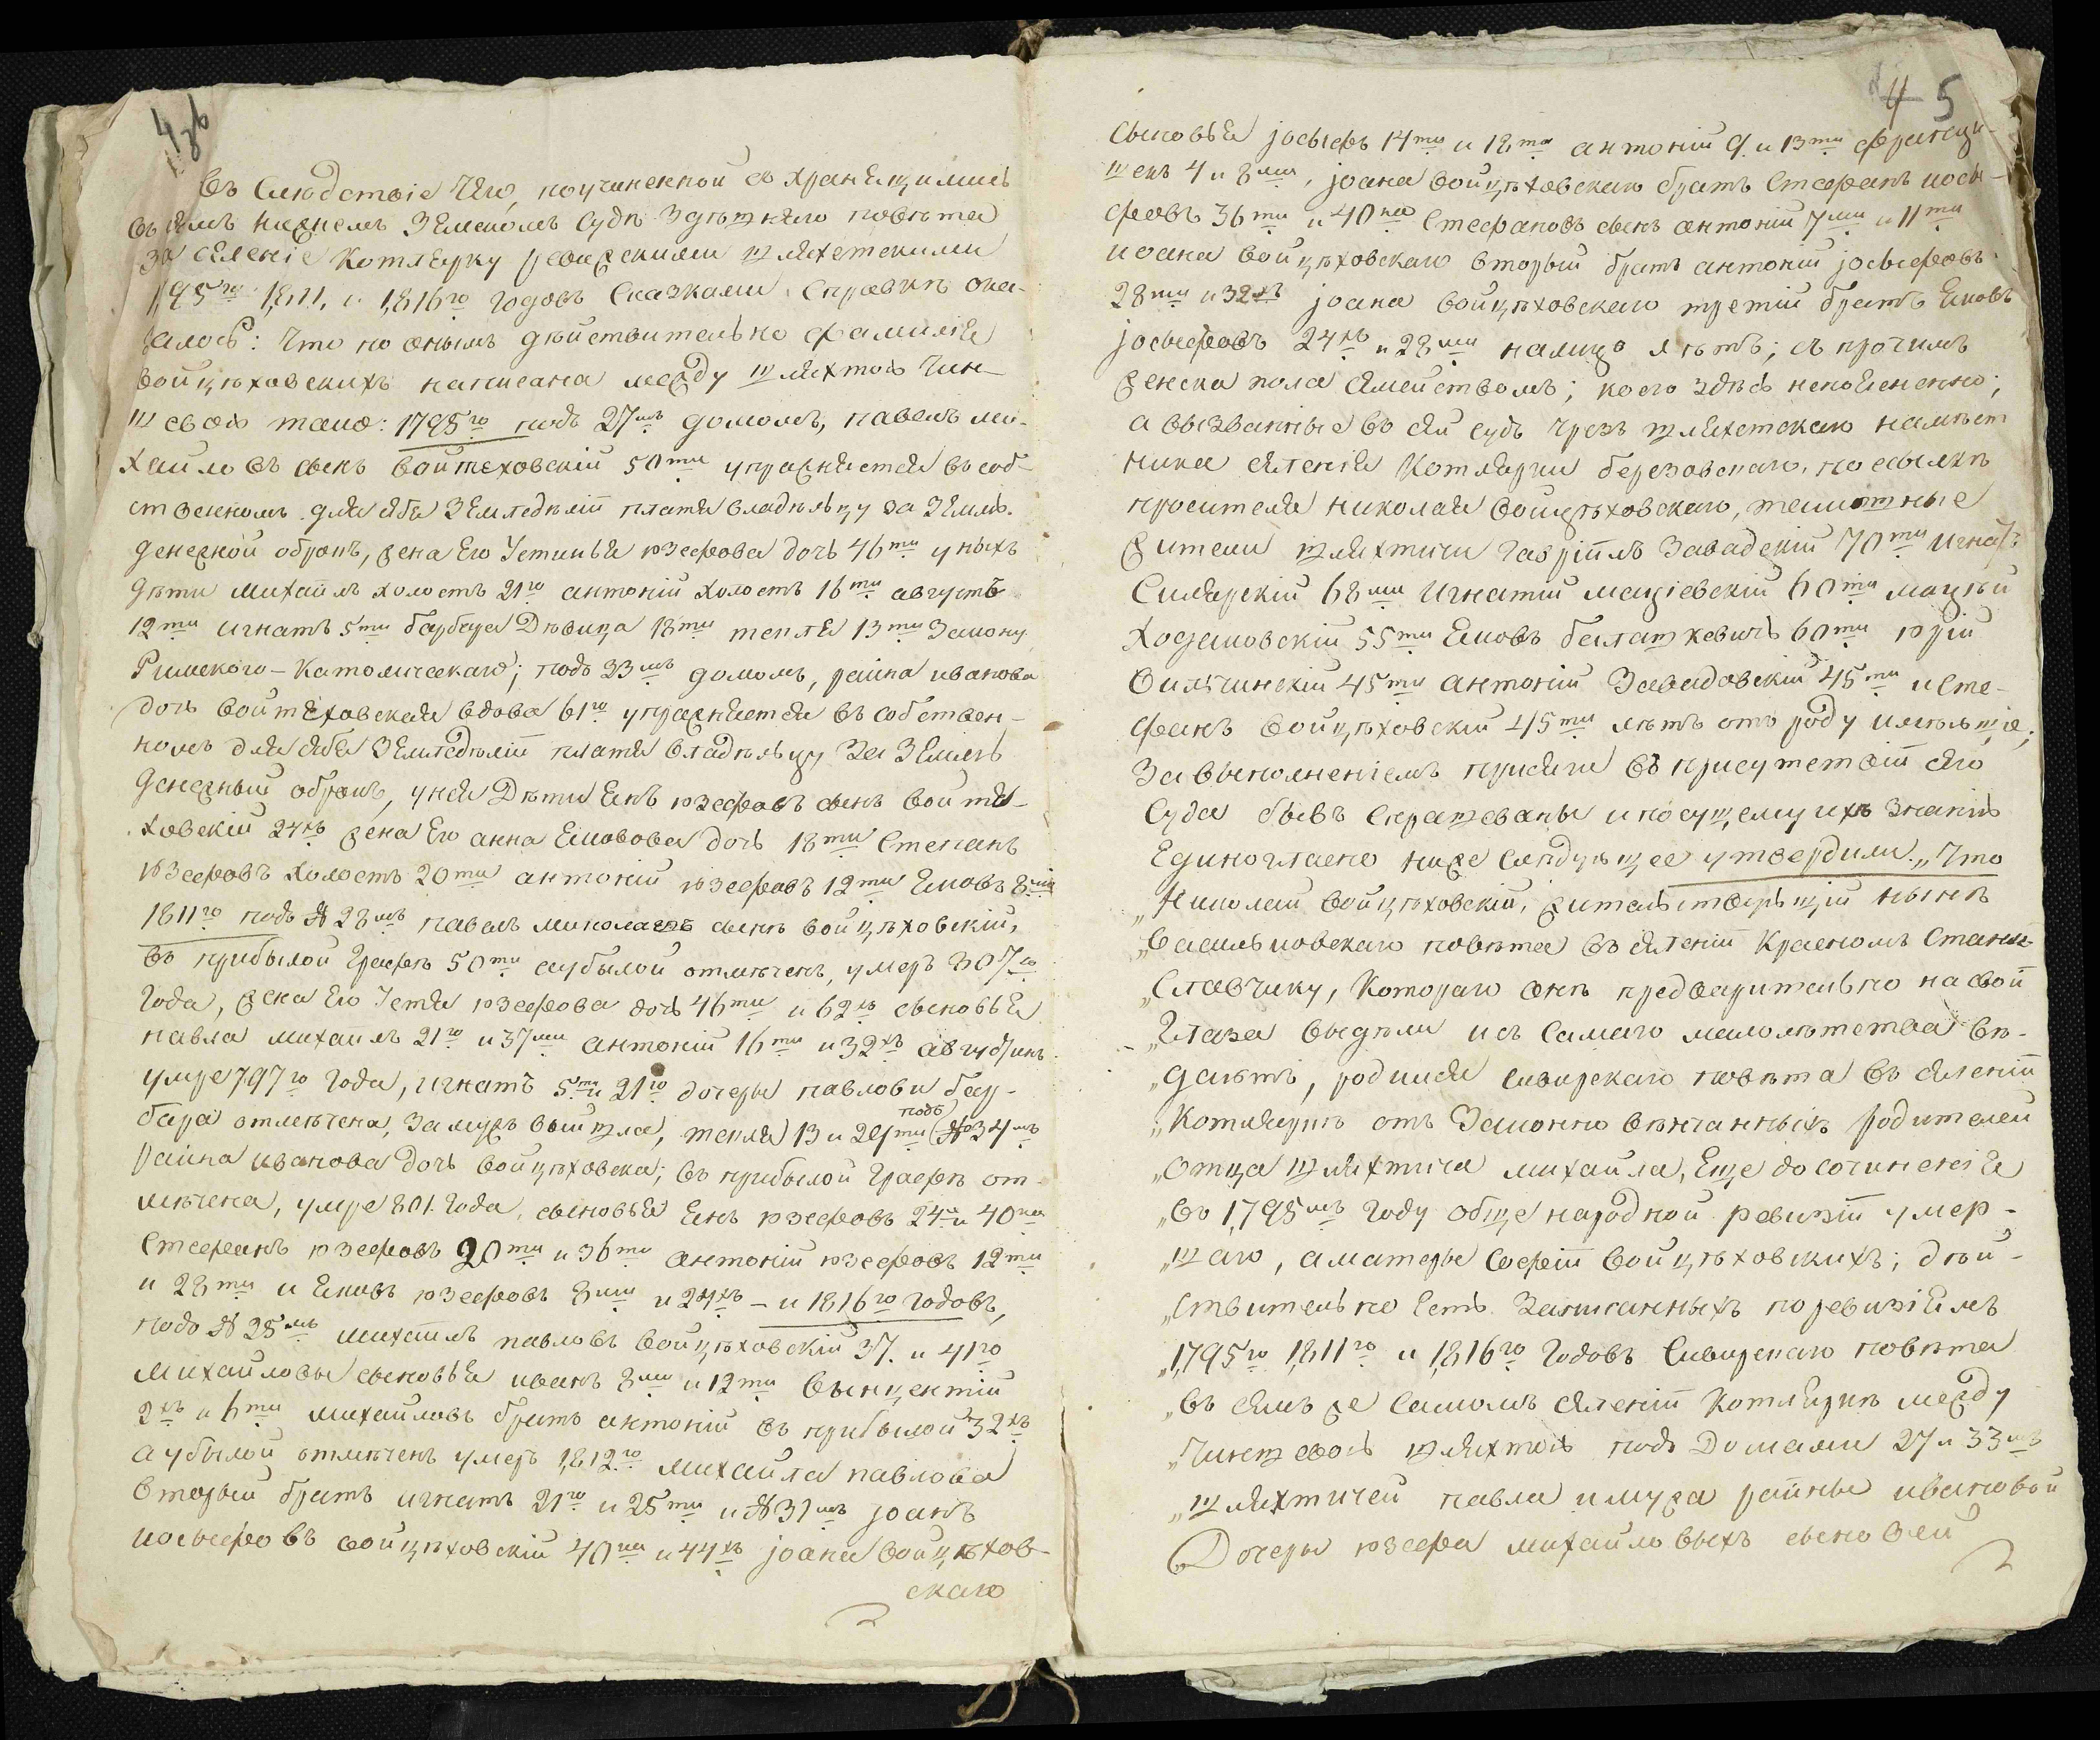 4 об
Въ Слюдствіе чего, поучиненной съ хранящимись
въ семъ нижнемъ Земскомъ Судѣ здѣшняго повѣта
за селеніе Котлярку ревижскими шляхетскими
1795го 1811, и 1816го годовъ Сказками Справкѣ ока-
залось: Что по онымъ дѣйствительно фамилія
войцѣховскихъ написана между шляхтою чин-
шевою тако: 1795го подъ 27мъ домомъ, павелъ ми-
хайловъ сынъ войтеховскій 50ти упражняется въ соб-
ственномъ для себя Земледѣліи платя владѣльцу за Землю
денежной оброкъ, жена Его Устинья юзефова дочь 46ти у ныхъ
дѣти михаилъ холостъ 21го антоній холостъ 16ти августъ
12ти игнатъ 5ти барбара Дѣвица 18ти текля 13ти Закону
Римского-Католическаго; подъ 33мъ домомъ, раина иванова
дочь войтеховская вдова 61го упражняется въ собствен-
номъ для себя Земледѣліи платя владѣльцу за Землю
денежный оброкъ, у нея Дѣти Янъ юзефовъ сынъ войтя-
ховскій 24хъ жена Его анна Яковова дочь 18ти Степанъ
юзефовъ холостъ 20ти антоній юзефовъ 12ти Яковъ 8ми
1811го подъ № 28мъ павелъ миколаевъ сынъ войцѣховскій,
въ прибылой Графѣ 50ти аубылой отмѣченъ, умеръ 807го
года, жена Его Устя юзефова дочь 46ти и 62хъ сыновья
павла михаилъ 21го и 37ми антоній 16ти и 32хъ августинъ
умре 797го года, игнатъ 5ти и 21го дочеры павловы бар-
бара отмѣчена, замужъ вышла, текля 13 и 29ти подъ № 34мъ
раина иванова дочь войцѣховска; въ прибылой Графѣ от-
мѣчена, умре 801. года, сыновья Янъ юзефовъ 24 и 40ка
Стефанъ юзефовъ 20ти и 36ти антоній юзефовъ 12ти
и 28ти и Яковъ юзефовъ 8ми и 24хъ – и 1816го годовъ,
подъ № 25мъ михаилъ павловъ войцѣховскій 37. и 41го
михайловы сыновья иванъ 8ми и 12ти вынцентій
2хъ и 6ти михайловъ братъ антоній въ прибылой 32хъ
аубылой отмѣченъ умеръ 1812го михайла павлова
вторый братъ игнатъ 21го и 25ти и № 31мъ јоанъ
иосыфовъ войцѣховскій 40ка и 44хъ јоана войцѣхов-
скаго
4 5
сыновья јосыфъ 14ти и 18ти антоній 9. и 13ти францы-
шекъ 4 и 8ми, јоана войцѣховскаго братъ Стефанъ иосы-
фовъ 36ти и 40ка Стефановъ сынъ антоній 7ми и 11ти
иоана войцѣховскаго вторый братъ антоній јосыфовъ
28ми и 32хъ јоана войцѣховскаго третій братъ Яковъ
јосыфовъ 24хъ и 28ми налицо лѣтъ; съ прочимъ
женска пола семействомъ; коего здѣсь непояснено;
а вызванные въ сей судъ чрезъ шляхетскаго намѣст
ника селенія Котлярки березовскаго, посылкѣ
просителя николая войцѣховскаго, тамошные
жители шляхтичи гавріилъ Завадскій 70ти игнатъ
Сикярскій 68ми Игнатій мацієвскій 60ти мацѣй
Ходаковскій 55ти Яковъ билашкевичъ 60ти юрій
Вильчинскій 45ти антоній Завадовскій 45ти и Сте-
фанъ войцѣховскій 45ти лѣтъ отъ роду имѣющіе,
за выполненіемъ присяги въ присутствіи сего
Суда бывъ спрашеваны и посущему ихъ знанію
Единогласно ниже слѣдующее утвердили. „Что
„Николай войцѣховскій, жительствующій нынѣ
„Васильковскаго повѣта въ селеніи Красномъ Стани-
„Славчику, Котораго онѣ предварительно на свои
„Глаза выдѣли и съ самаго малолѣтства вѣ-
„даютъ, родился сквирскаго повѣта въ селеніи
„Котляркѣ отъ Законно вѣнчанныхъ родителей
„Отца шляхтича михайла, Еще до сочиненія
„въ 1795мъ году общенародной ревизіи умер-
„шаго, а матеры Софіи войцѣховскихъ; дѣй-
„ствительно Есть Записанныхъ по ревизіямъ
„1795го 1811го и 1816го годовъ Сквирскаго повѣта
„въ семъ же самомъ селеніи Котляркѣ между
„Чиншевою шляхтою подъ Домами 27 и 33мъ
„шляхтичей павла и мужа раины ивановой
Дочеры юзефа михайловыхъ сыновей